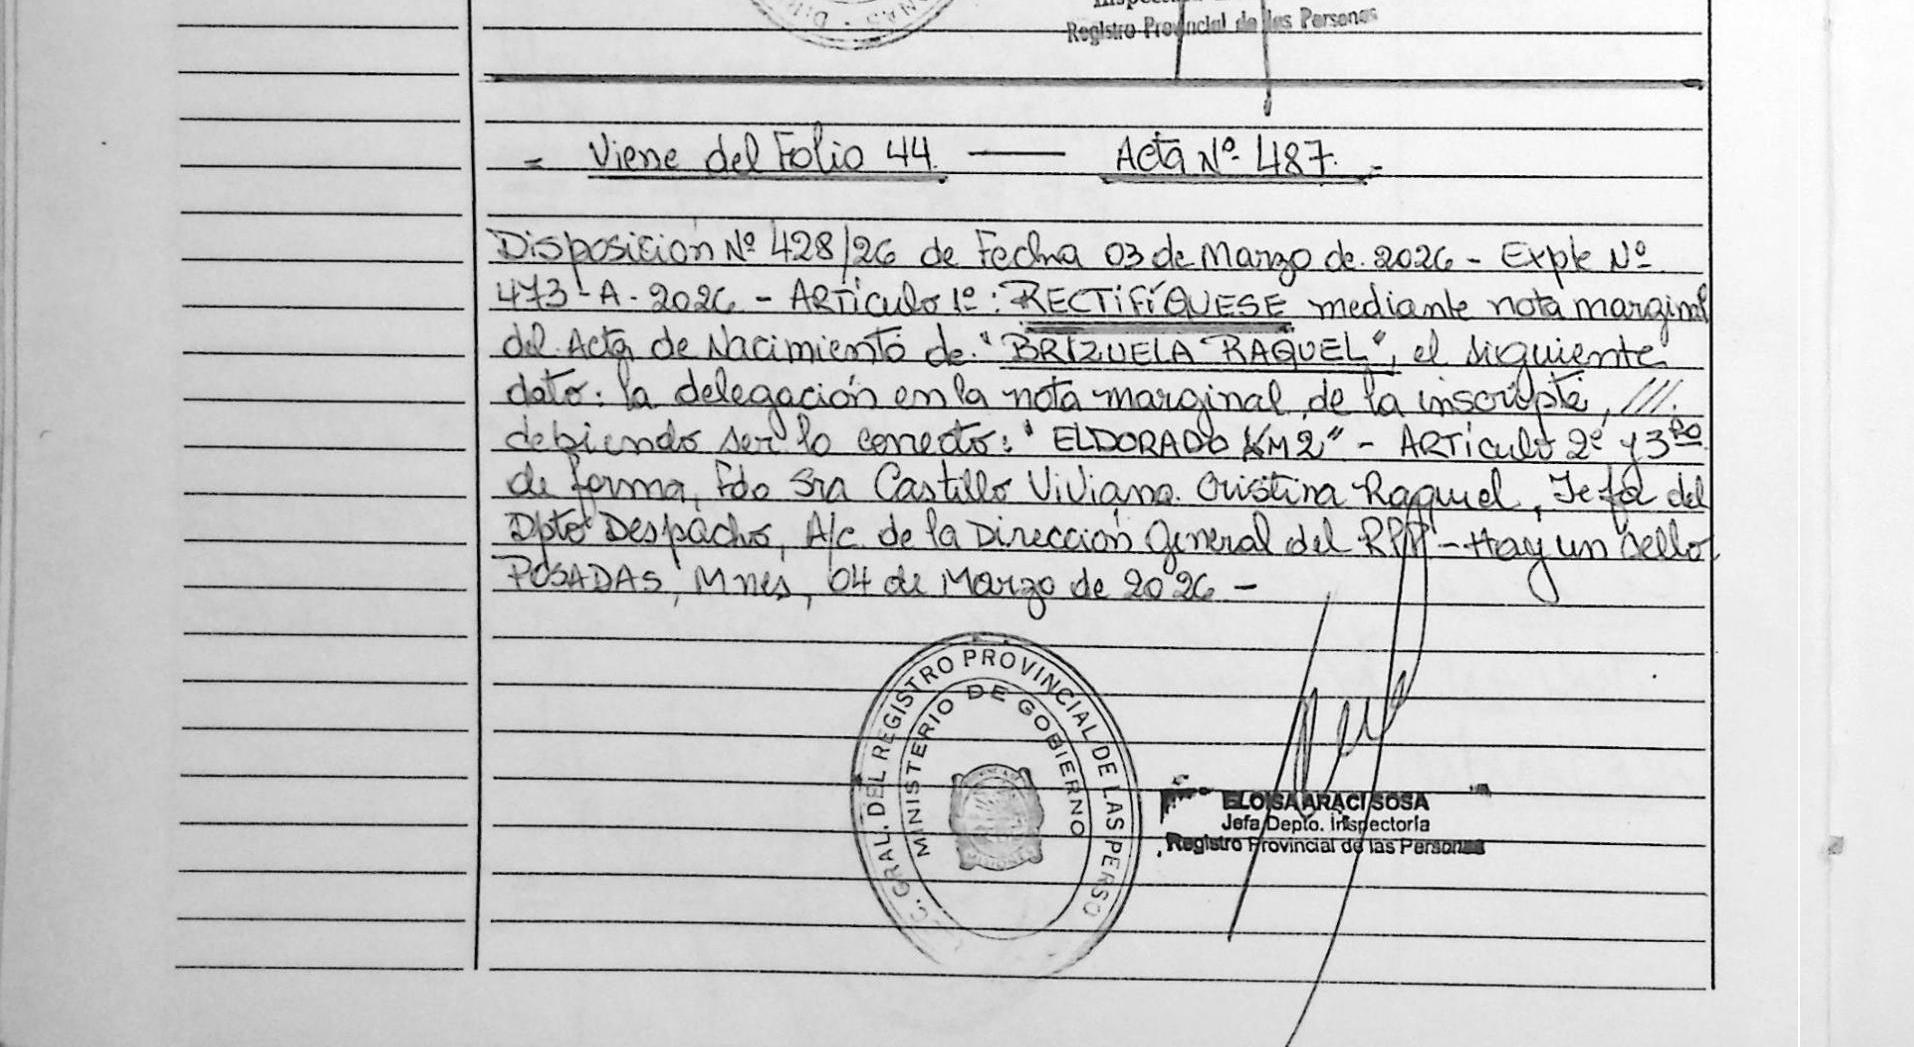 Registro Provincial de las Personas
= Viene del Folio 44. —— Acta Nº 487.=
Disposición Nº 428/26 de Fecha 03 de Marzo de 2026 - Expte Nº
473-A-2026 - ARTiculo 1º: RECTIFÍQUESE mediante nota marginal
del Acta de Nacimiento de "BRIZUELA RAQUEL", el siguiente
dato: la delegación en la nota marginal de la inscripta, ///.
debiendo ser lo correcto: "ELDORADO KM2" - ARTículo 2º y 3ro
de forma, Fdo Sra Castillo Viviana Cristina Raquel, Jefa del
Dpto Despacho, A/c de la Dirección General del RPP - Hay un sello
POSADAS, Mnes, 04 de Marzo de 2026 -
C. GRAL. DEL REGISTRO PROVINCIAL DE LAS PERSO
MINISTERIO DE GOBIERNO
ELOISA ARACI SOSA
Jefa Depto. Inspectoría
Registro Provincial de las Personas